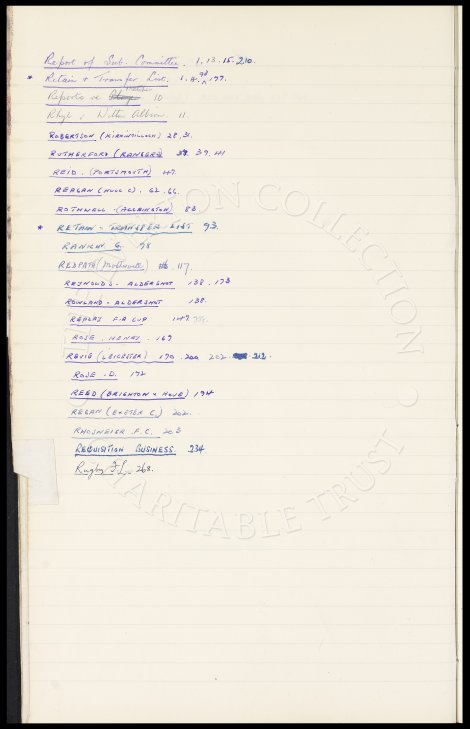 Report of Sub. Committee. 1. 13. 15. 210.
* Retain + Transfer List. 1. A. 93. 177.
Reports re 10
Rhyl v Witton Albion. 11
ROBERTSON (KIRKINTILLOCH) 28. 31.
RUTHERFORD (RANGERS) 39. 41
REID. (PORTSMOUTH) 47.
REAGAN (HULL C). 62. 66.
ROTHWELL - (ACCRINGTON) 83.
* RETAIN - TRANSFER LIST 93.
RANKIN G. 98
REDPATH (Motherwell) 116. 117.
REYNOLDS - ALDERSHOT 138. 173
ROWLAND - ALDERSHOT 138.
REPLAY F.A CUP 147.
ROSE. HENRY. 167
REVIE (LEICESTER) 170. 200 202. 212.
ROSE. D. 172
REED (BRIGHTON & HOVE) 194
REGAN (EXETER C.) 202.
RHOSNEIGR F.C. 205
REQUISITION BUSINESS. 234
Rugby F.L. 268.
COLLECTION
CHARITABLE TRUST